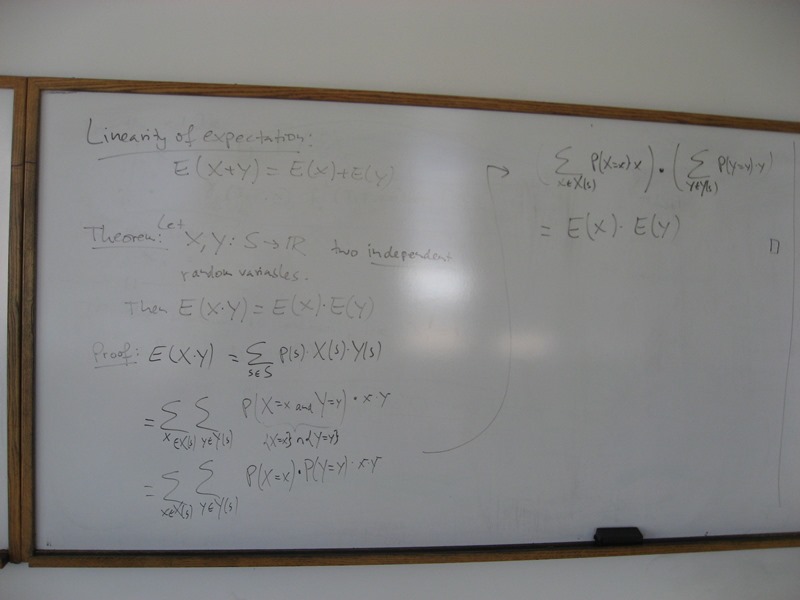 Linearity of expectation:
E(X+Y) = E(X)+E(Y)
Theorem: Let X, Y: S → ℝ two independent
random variables.
Then E(X·Y) = E(X)·E(Y)
Proof: E(X·Y) = ∑_{s∈S} p(s)·X(s)·Y(s)
= ∑_{x∈X(S)} ∑_{y∈Y(S)} P(X=x and Y=y)·x·y
{X=x}∩{Y=y}
= ∑_{x∈X(S)} ∑_{y∈Y(S)} P(X=x)·P(Y=y)·x·y
(∑_{x∈X(S)} P(X=x)x)·(∑_{y∈Y(S)} P(Y=y)·y)
= E(X)·E(Y)
□